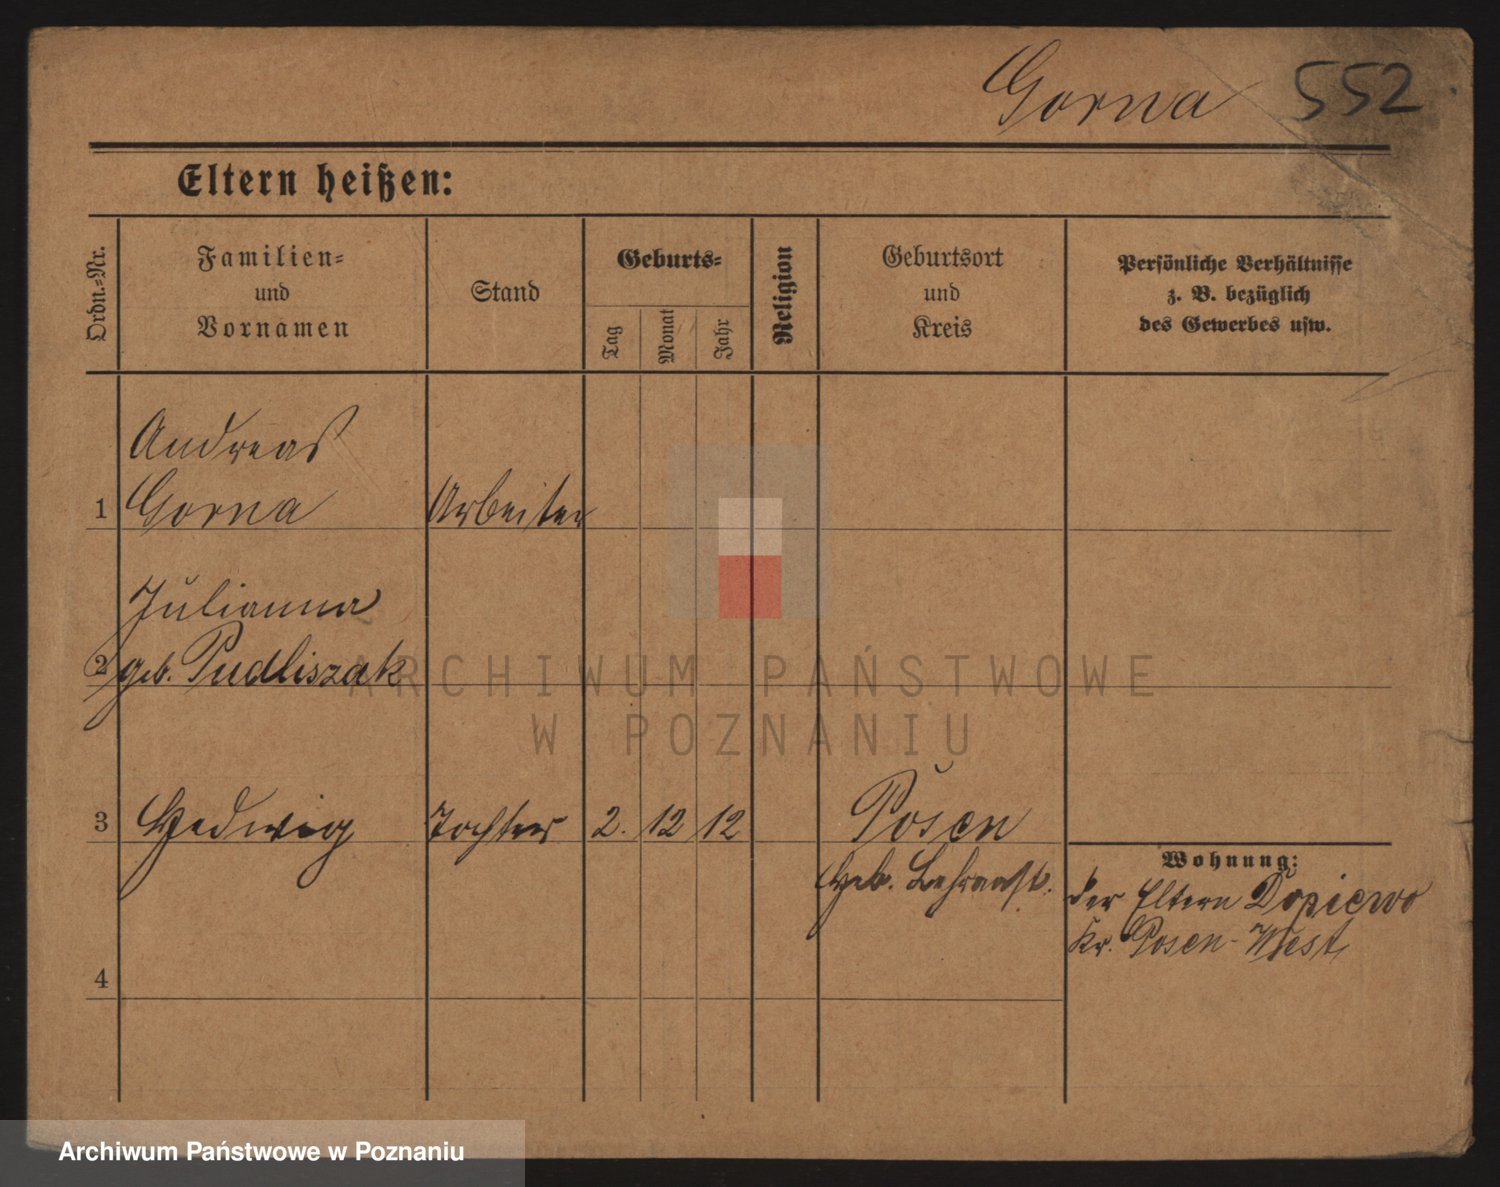 Gorna 552
Eltern heißen:
Ordn.-Nr.
Familien-
und
Vornamen
Stand
Geburts-
Tag
Monat
Jahr
Religion
Geburtsort
und
Kreis
Persönliche Verhältnisse
z. B. bezüglich
des Gewerbes usw.
Andreas
1 Gorna Arbeiter
Julianna
2 geb. Pudliszak
3 Hedwig Tochter 2. 12 12 Posen
Wohnung:
Geb.
der Eltern Dopiewo
Kr. Posen-West
4
ARCHIWUM PAŃSTWOWE
W POZNANIU
Archiwum Państwowe w Poznaniu